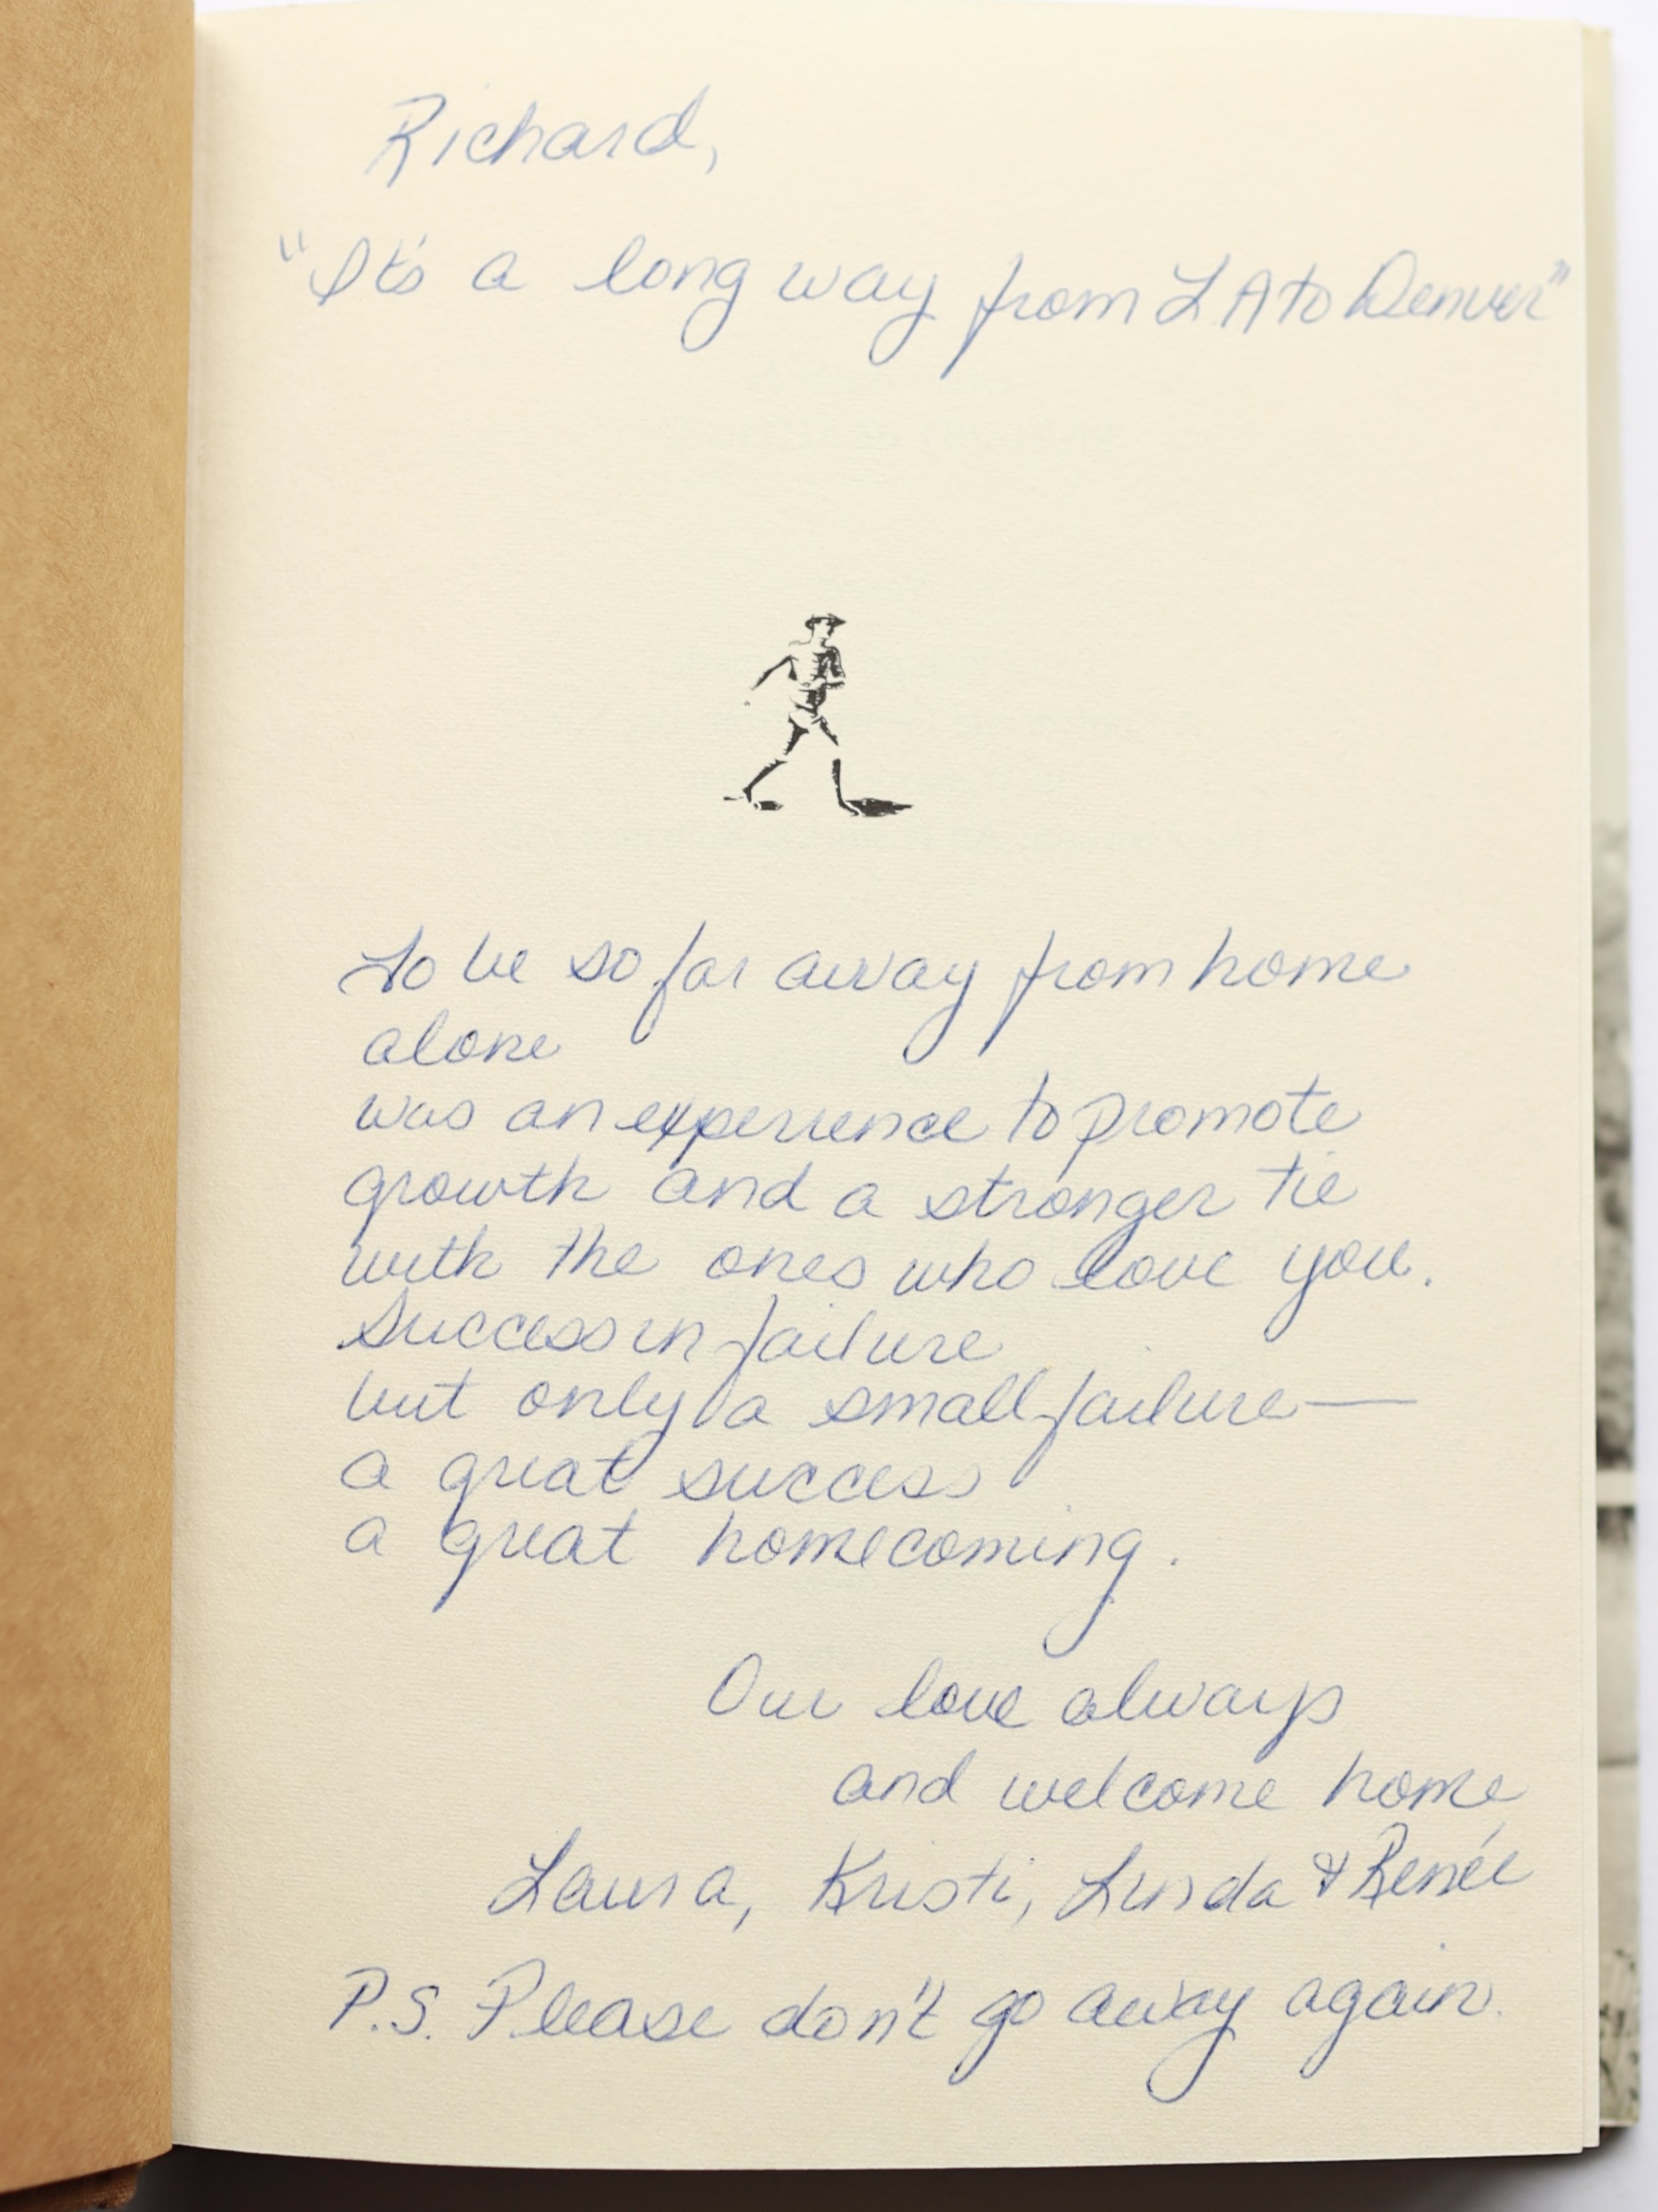 Richard,
"It's a long way from LA to Denver"
To be so far away from home
alone
was an experience to promote
growth and a stronger tie
with the ones who love you.
Success in failure
but only a small failure—
a great success
a great homecoming.
Our love always
and welcome home
Laura, Kristi, Linda & Renée
P.S. Please don't go away again.